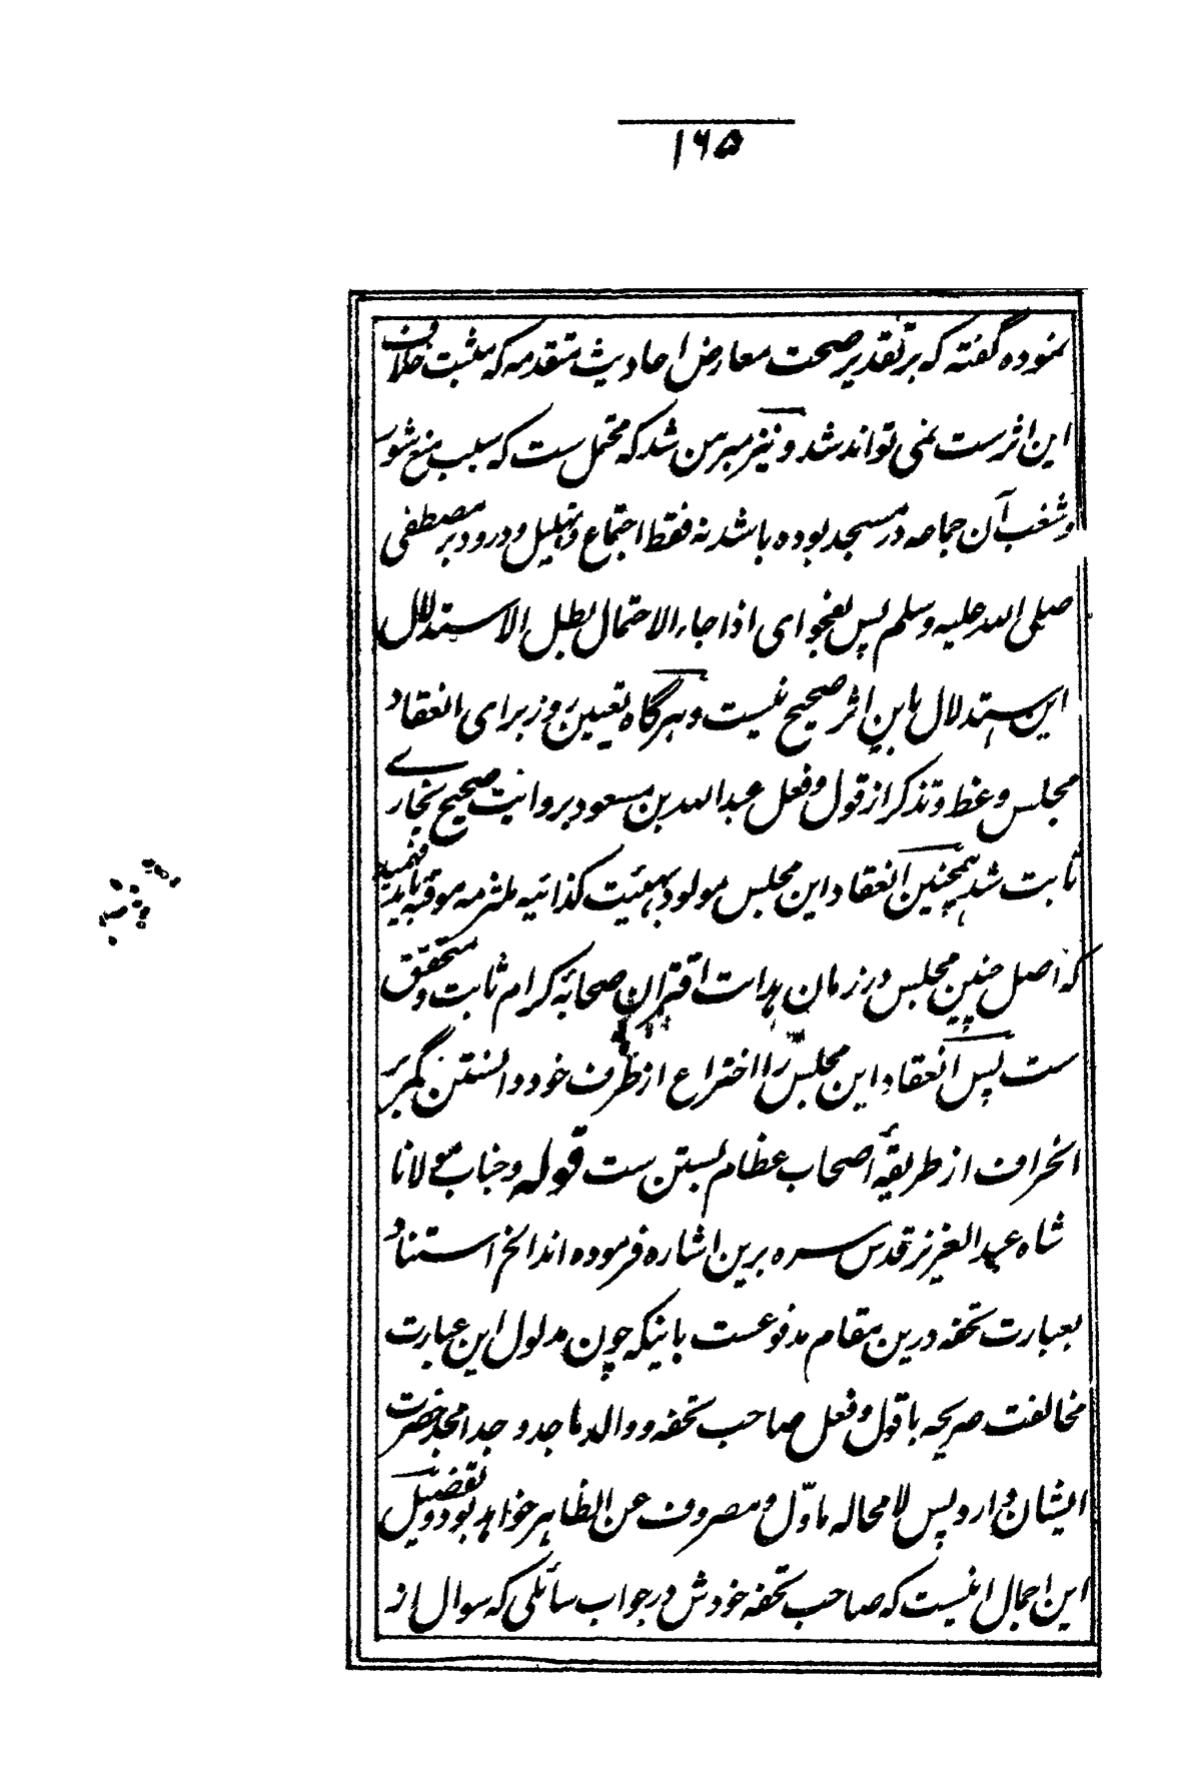 ۱۶۵
نموده گفته که بر تقدیر صحت معارض احادیث متقدمه که مثبت خلاف
این اثرست نمی تواند شد و نیز مبرهن شد که محتمل ست که سبب منع شور
و شغب آن جماعه در مسجد بوده باشد نه فقط اجتماع و تهلیل و درود بر مصطفی
صلی الله علیه وسلم پس بفحوای اذا جاء الاحتمال بطل الاستدلال
این استدلال باین اثر صحیح نیست و هرگاه تعیین روز برای انعقاد
مجلس وعظ و تذکر از قول و فعل عبدالله بن مسعود بروایت صحیح بخاری
ثابت شد همچنین انعقاد این مجلس مولود بهیئت کذائیه ملتزمه موقته باید فهمید
که اصل چنین مجلس در زمان هدایت اقتران صحابۀ کرام ثابت و متحقق
ست پس انعقاد این مجلس را اختراع از طرف خود دانستن کمر بر
انحراف از طریقۀ اصحاب عظام بستن ست قوله و جناب مولانا
شاه عبدالعزیز قدس سره برین اشاره فرموده اند الخ استناد
بعبارت تحفه درین مقام مدفوعست باینکه چون مدلول این عبارت
مخالفت صریحه با قول و فعل صاحب تحفه و والد ماجد و جد امجد حضرت
ایشان دارد پس لا محاله ماوّل و مصروف عن الظاهر خواهد بود و تفصیل
این اجمال اینست که صاحب تحفه خودش در جواب سائلی که سوال از